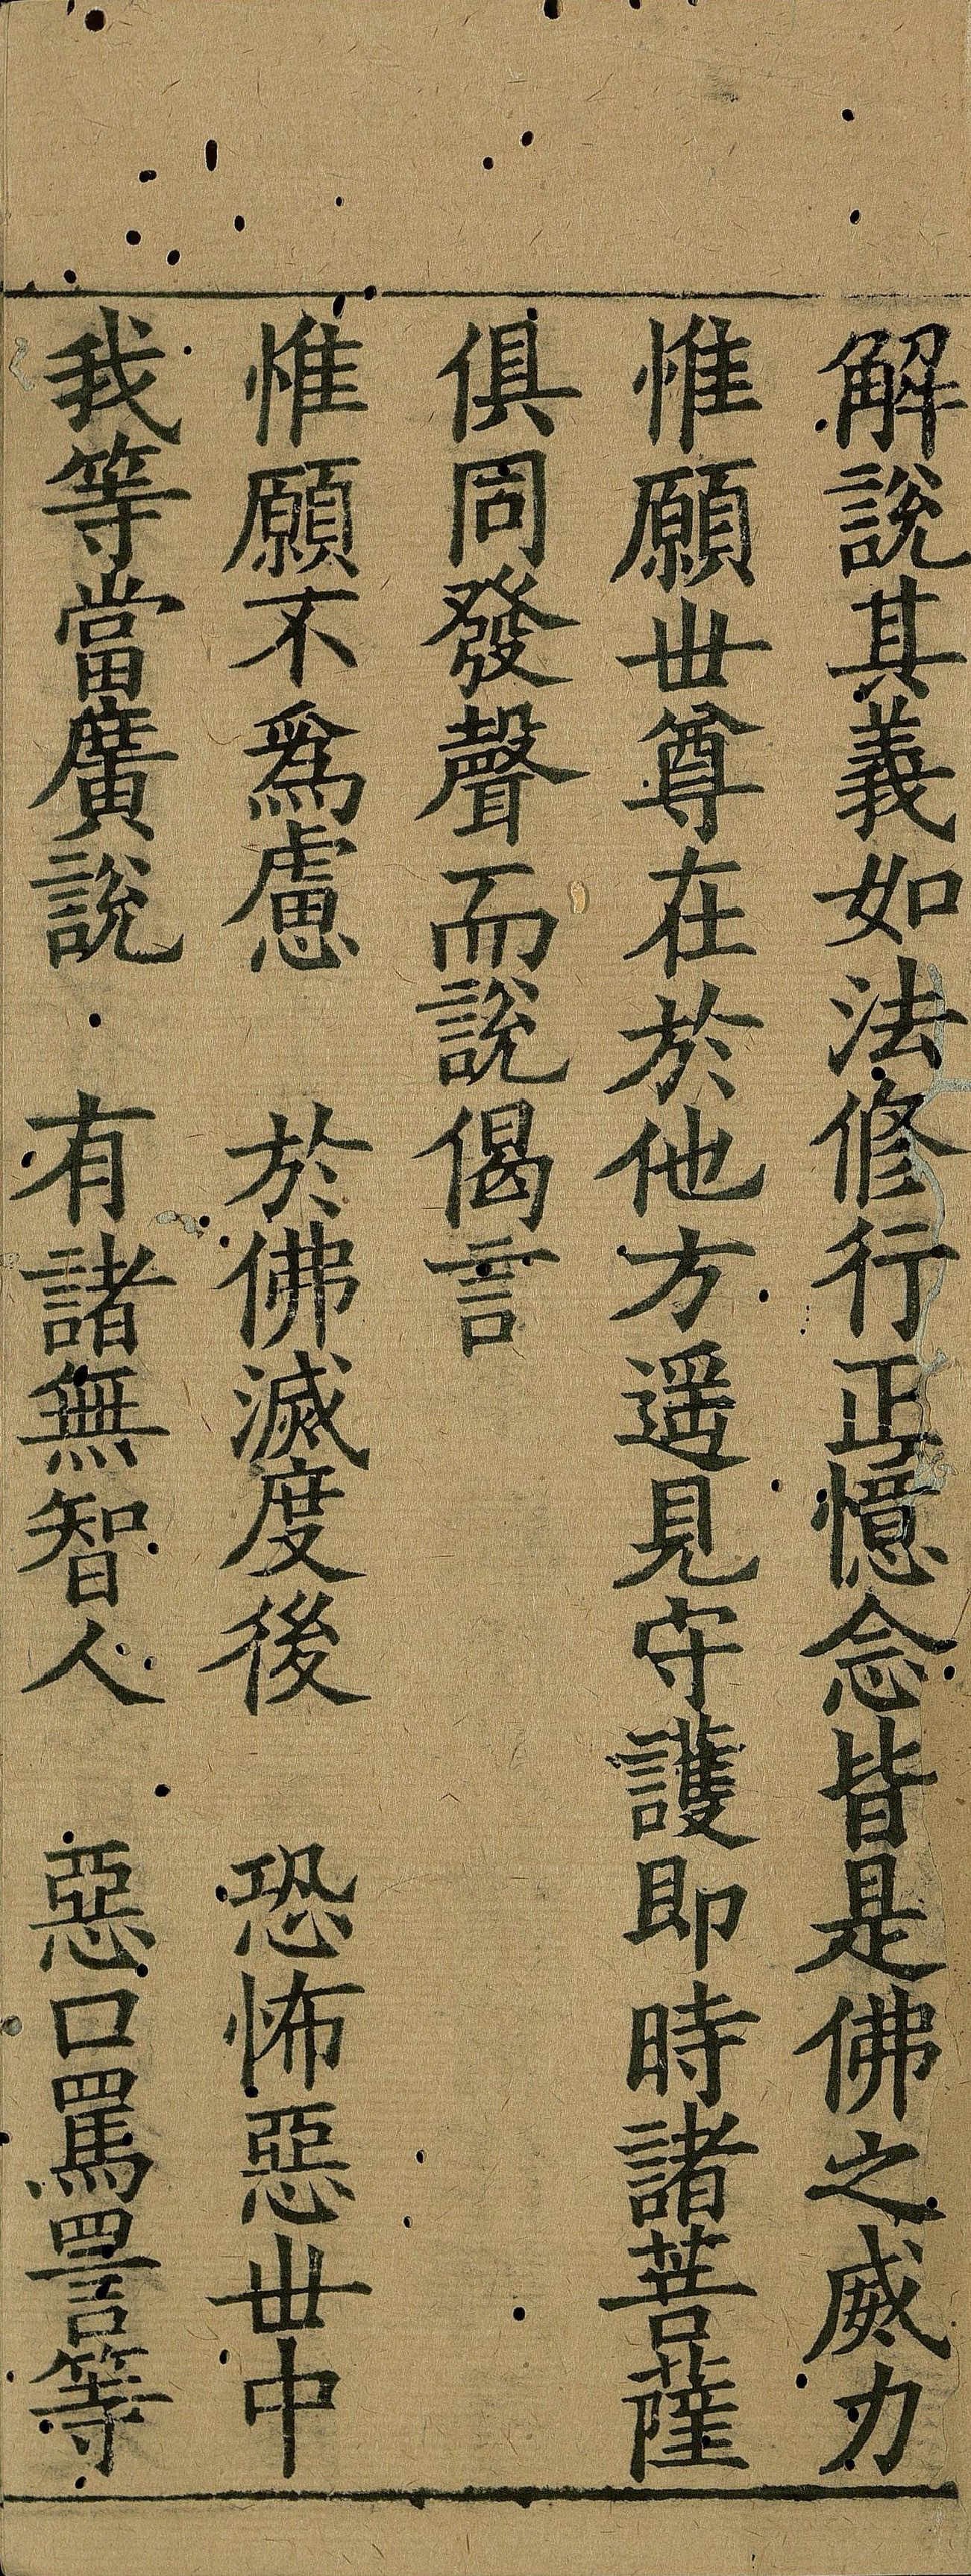 解說其義如法修行正憶念皆是佛之威力
惟願丗尊在於他方遥見守護即時諸菩薩
俱同發聲而說偈言
惟願不爲慮　於佛滅度後　恐怖惡丗中
我等當廣說　有諸無智人　惡口罵詈等